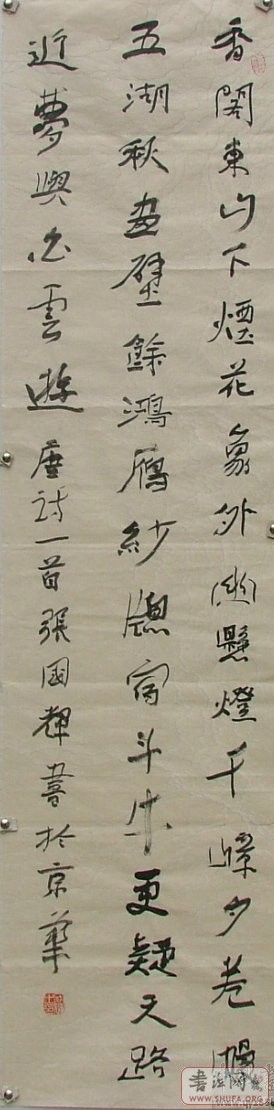 香閣東山下煙花象外幽懸燈千嶂夕卷幔
五湖秋畫壁餘鴻鴈紗牕宿斗牛更疑天路
近夢與白雲遊唐詩一首張國輝書於京華
WWW.SHUFA.ORG